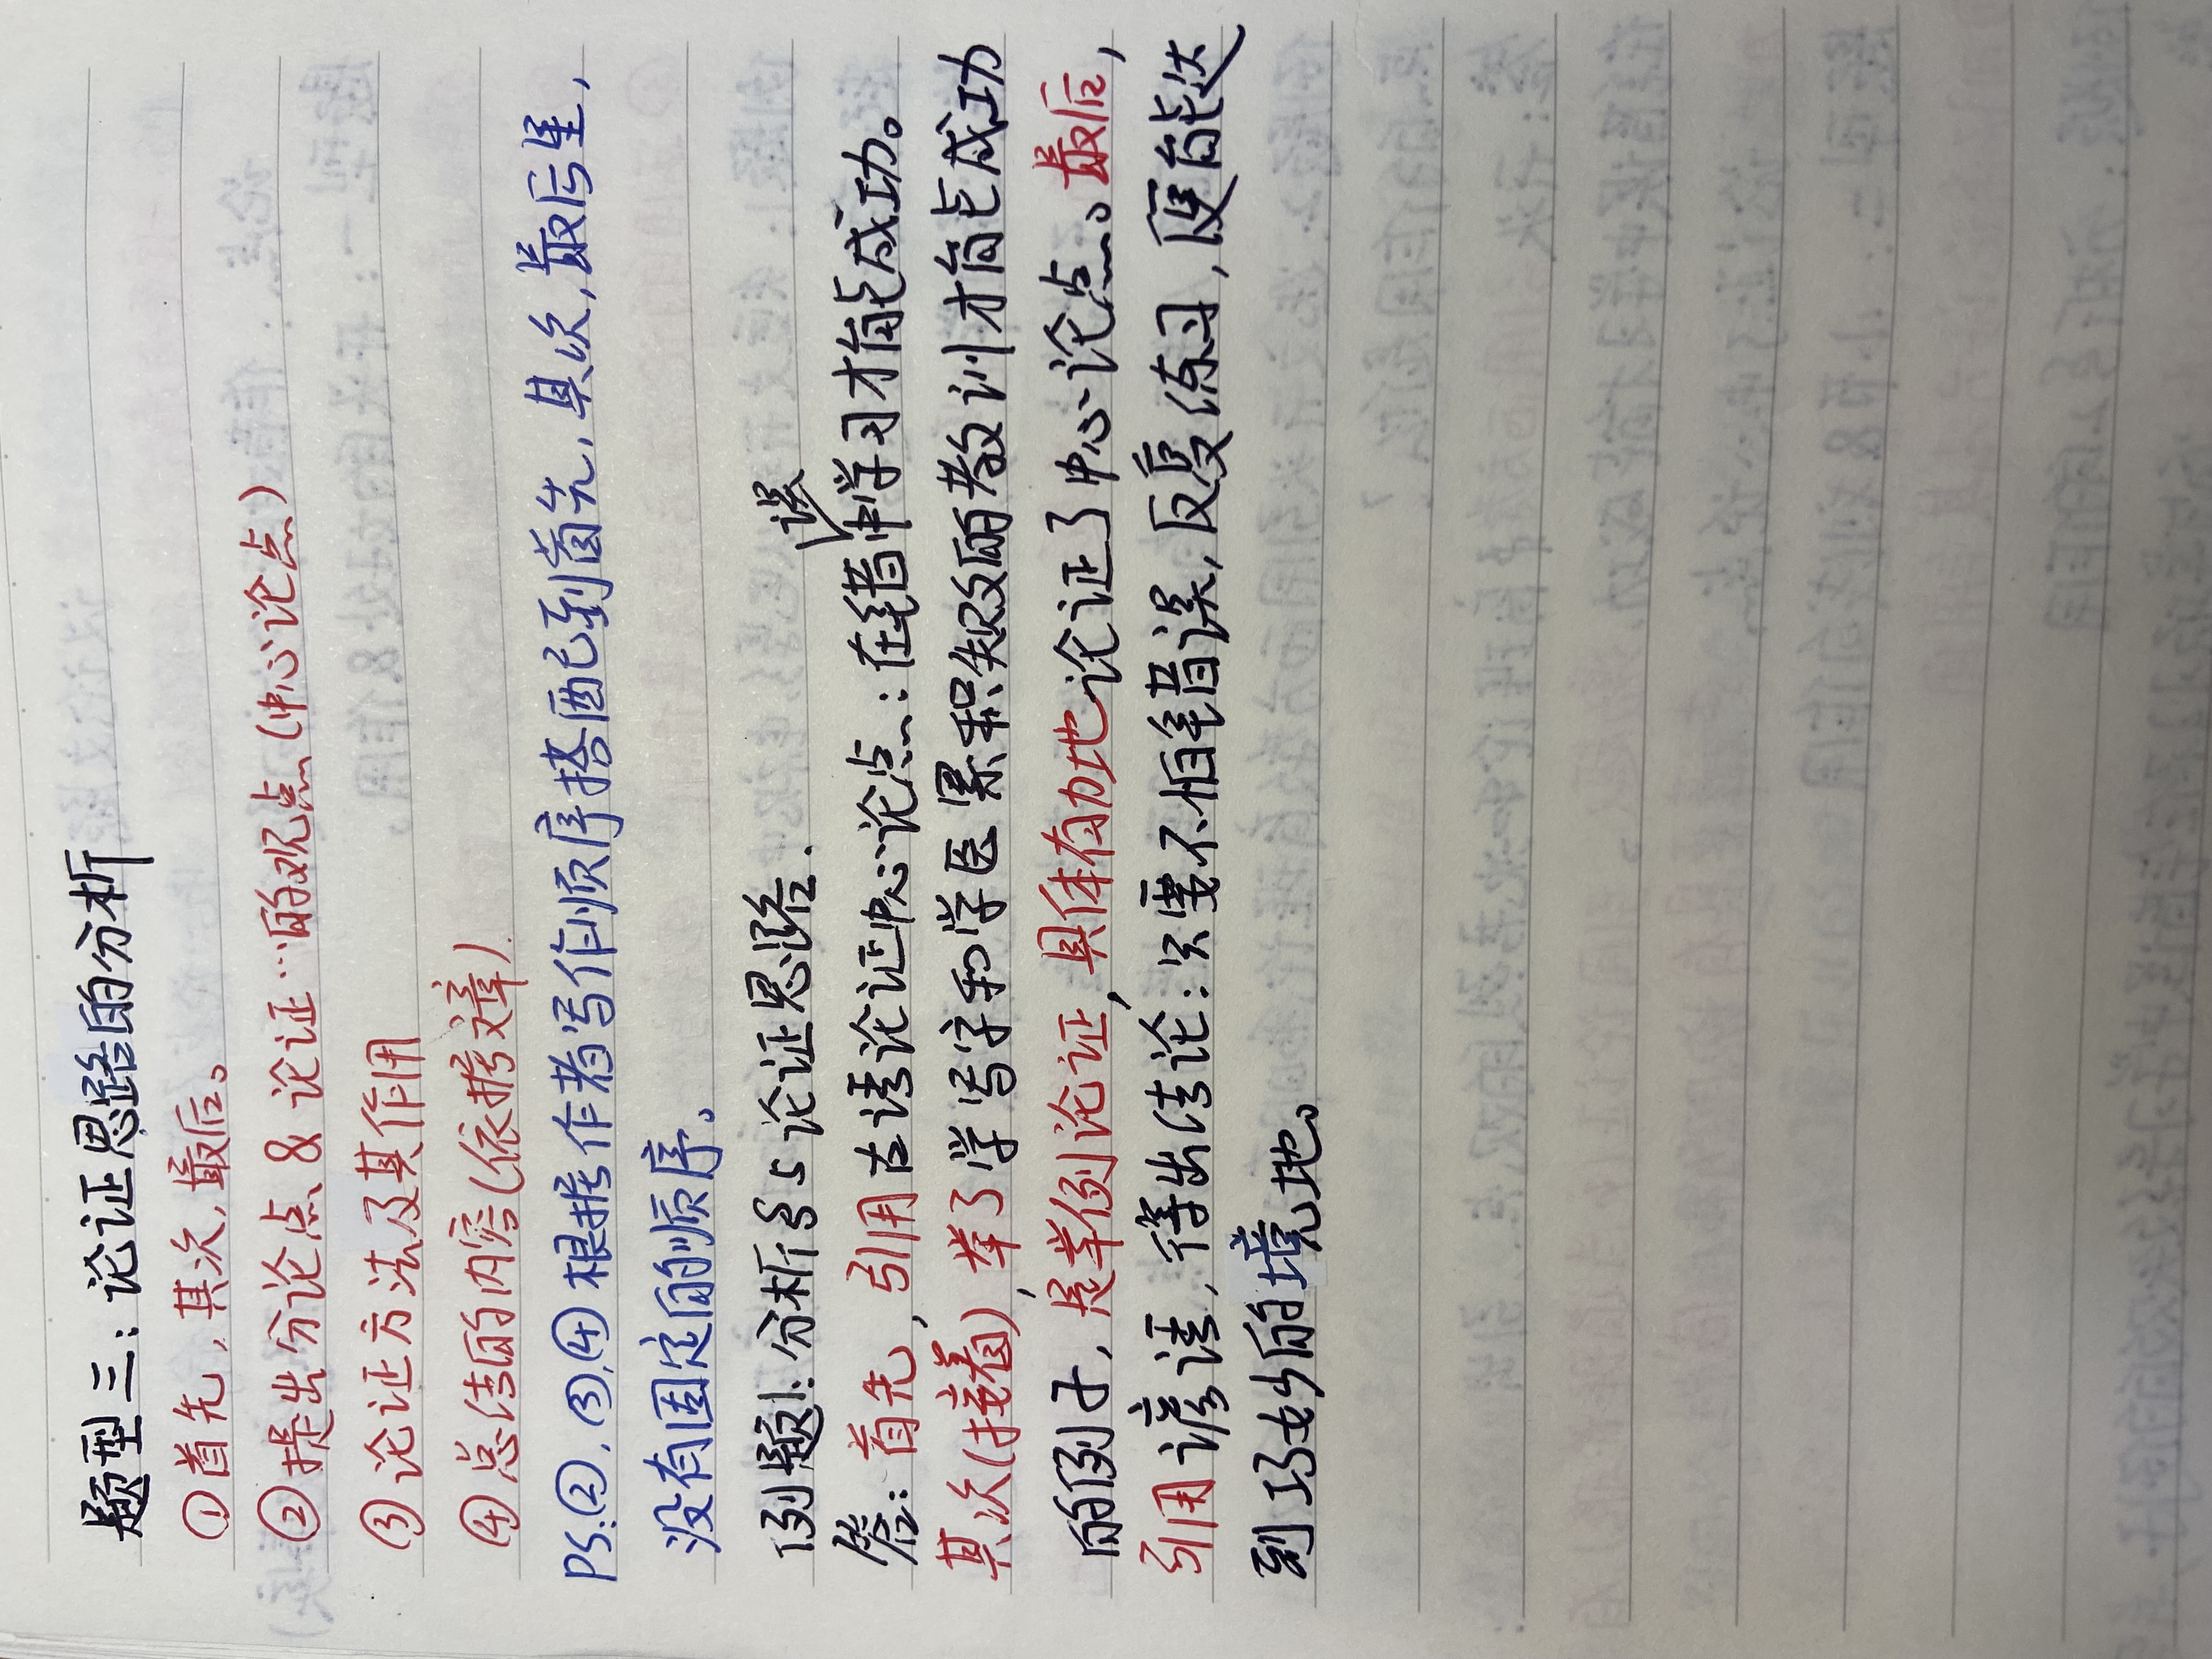 题型三：论证思路的分析
①首先，其次，最后。
②提出分论点&论证…的观点(中心论点)
③论证方法及其作用
④总结的内容(依据文章)
PS:②,③,④根据作者写作顺序搭配到首先,其次,最后里,
没有固定的顺序。
例题1:分析§5论证思路.
答：首先，引用古语论证中心论点：在错误中学习才能成功。
其次(接着)，举了学写字和学医累积失败的教训才能成功
的例子，是举例论证，具体有力地论证了中心论点。最后，
引用谚语，得出结论：只要不怕错误，反复练习，便能达
到巧妙的境地。